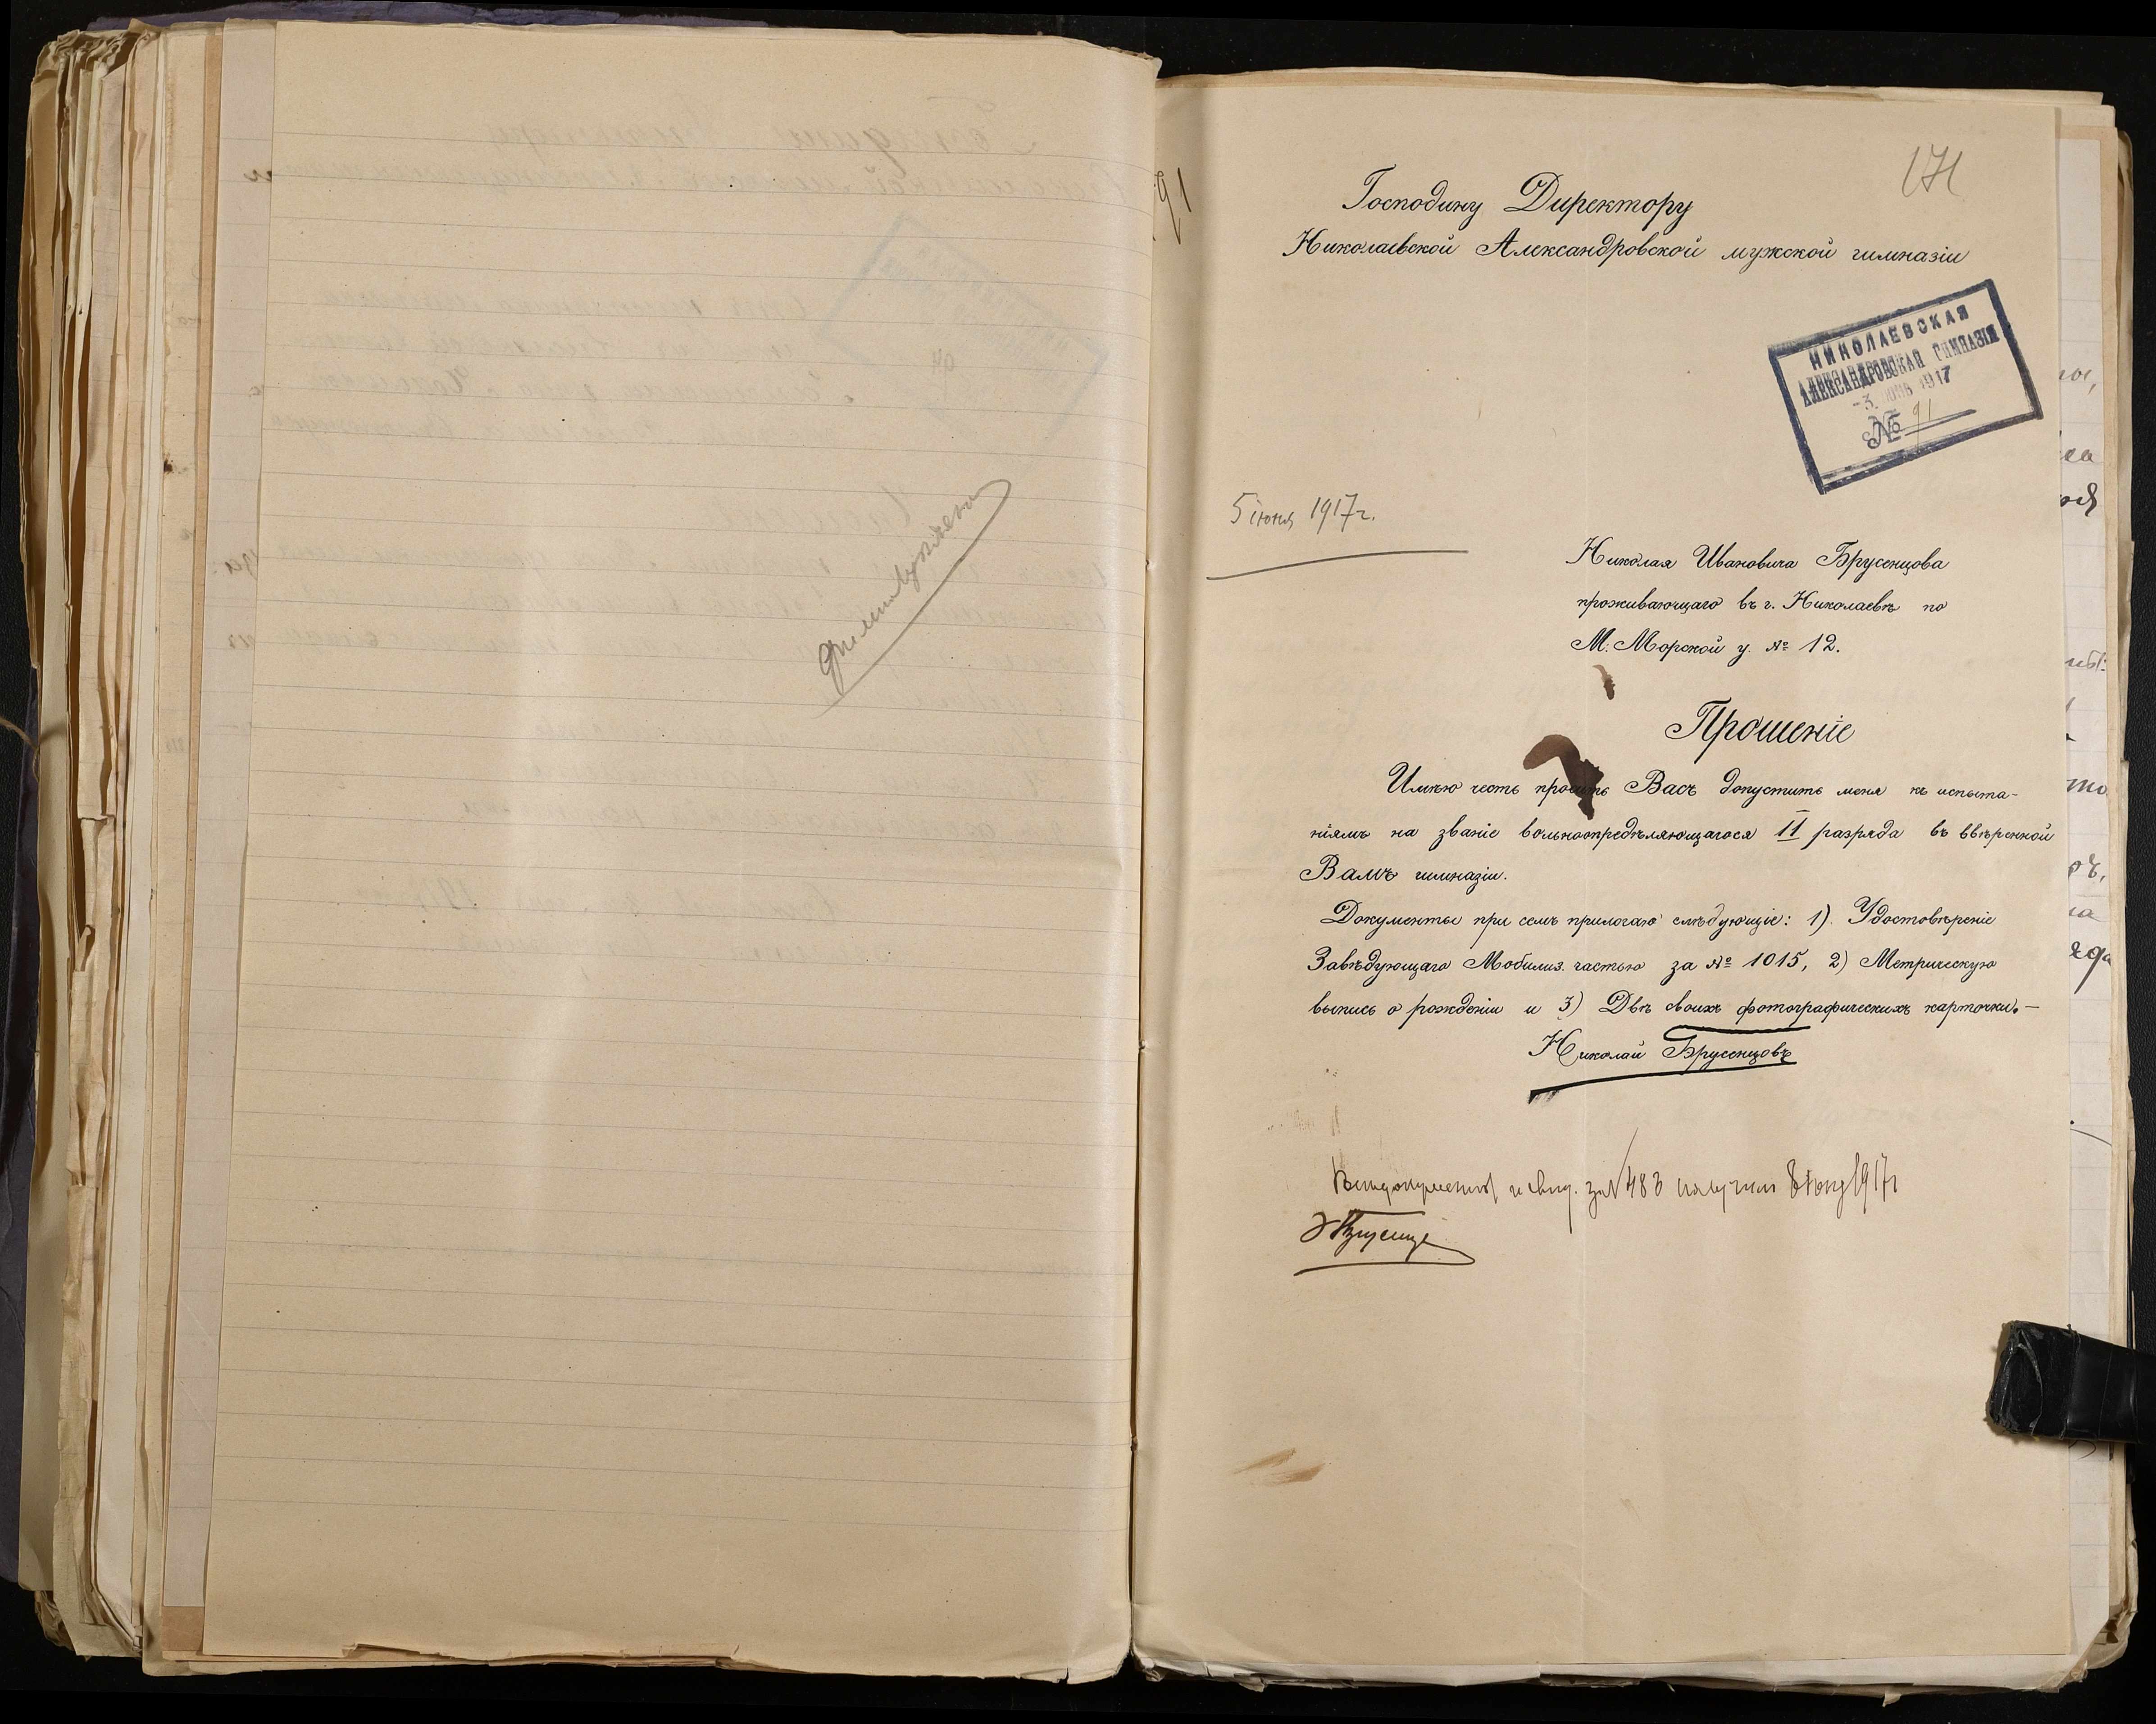 91
171
Господину Директору
Николаевской Александровской мужской гимназіи
НИКОЛАЕВСКАЯ
АЛЕКСАНДРОВСКАЯ ГИМНАЗІЯ
-3 1917
№ 91
5 іюня 1917 г.
Николая Ивановича Брусенцова
проживающаго въ г. Николаевѣ по
М. Морской у. № 12.
Прошеніе
Имѣю честь просить Васъ допустить меня къ испыта-
ніямъ на званіе вольноопредѣляющагося II разряда въ ввѣренной
Вамъ гимназіи.
Документы при семъ прилагаю слѣдующіе: 1). Удостовѣреніе
Завѣдующаго Мобилиз. частью за № 1015, 2) Метрическую
выпись о рожденіи и 3) Двѣ своихъ фотографическихъ карточки.—
Николай Брусенцовъ
документы и свид. за № 483 получил 8 іюня 1917 г